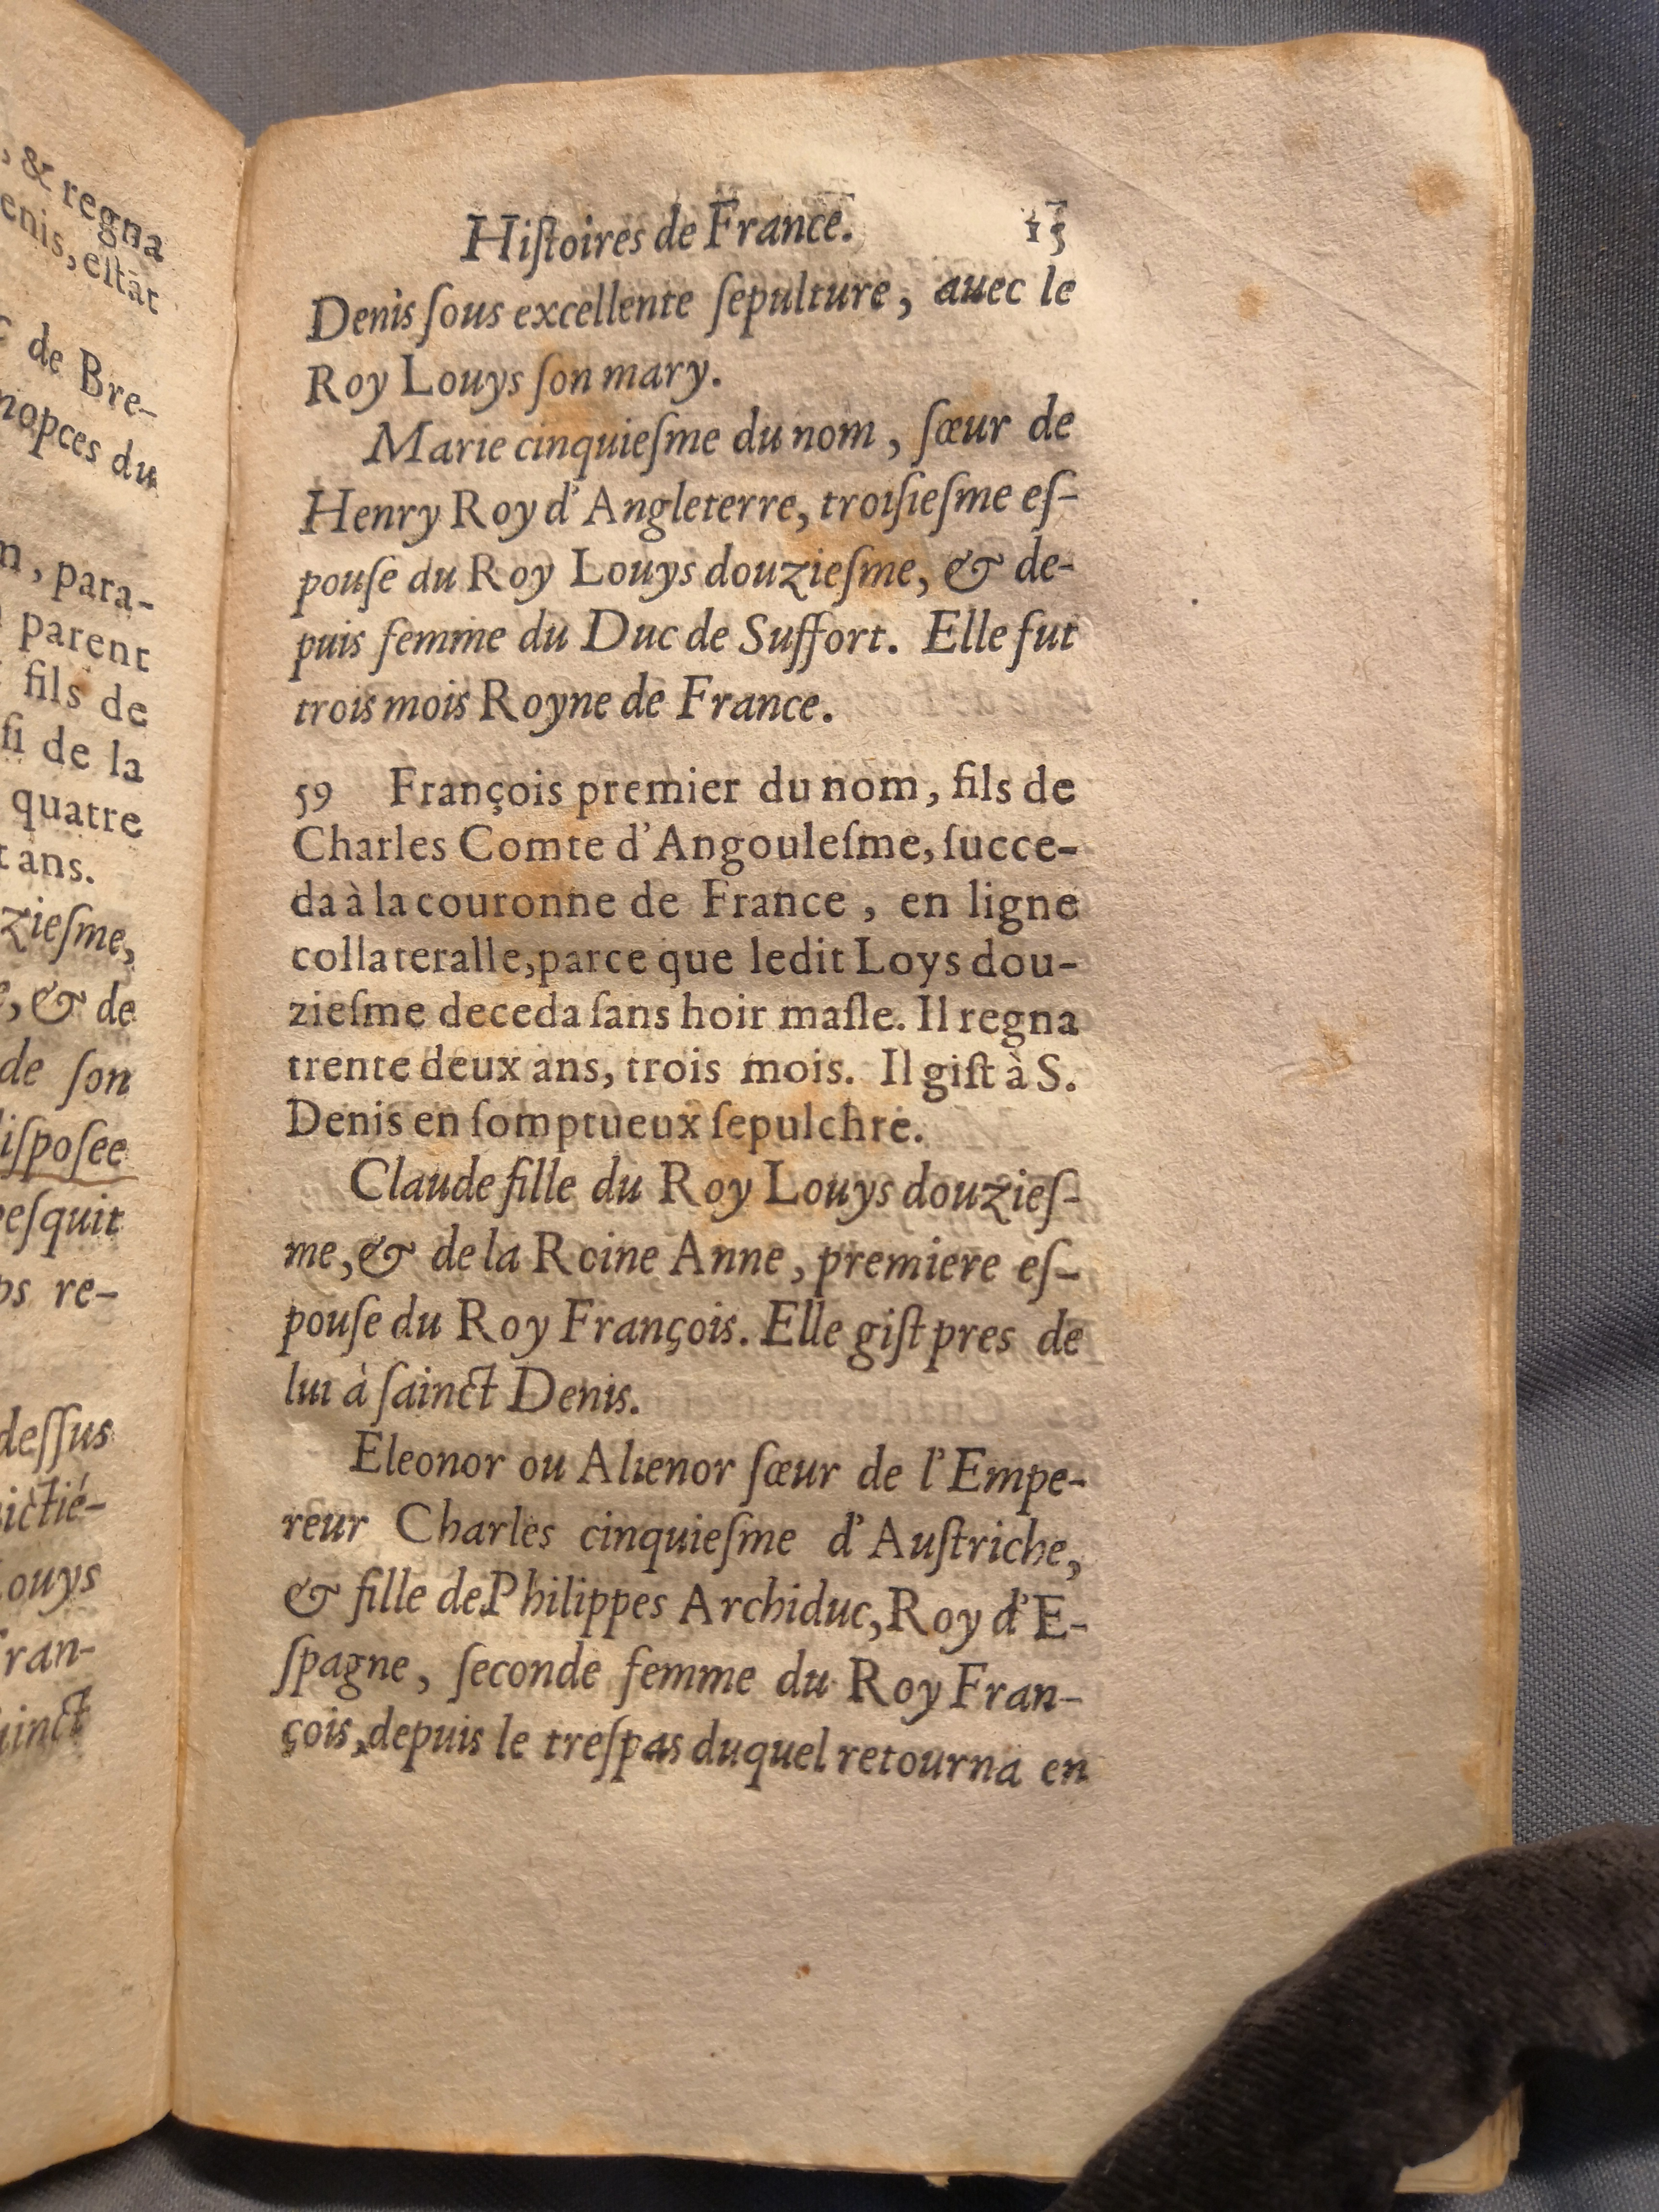 , & regna
enis, estãt
de Bre-
nopces du
n, para-
parent
fils de
si de la
quatre
t ans.
zieſme,
, & de
de ſon
iſpoſee
eſquit
ps re-
deſſus
ictié-
Louys
Fran-
ainct
Hiſtoires de France. 15
Denis ſous excellente ſepulture, auec le
Roy Louys ſon mary.
Marie cinquieſme du nom, ſœur de
Henry Roy d'Angleterre, troiſieſme eſ-
pouſe du Roy Louys douzieſme, & de-
puis femme du Duc de Suffort. Elle fut
trois mois Royne de France.
59 François premier du nom, fils de
Charles Comte d'Angouleſme, ſucce-
da à la couronne de France, en ligne
collateralle, parce que ledit Loys dou-
zieſme deceda ſans hoir maſle. Il regna
trente deux ans, trois mois. Il giſt à S.
Denis en ſomptueux ſepulchre.
Claude fille du Roy Louys douzieſ-
me, & de la Roine Anne, premiere eſ-
pouſe du Roy François. Elle giſt pres de
lui à ſainct Denis.
Eleonor ou Alienor ſœur de l'Empe-
reur Charles cinquieſme d'Auſtriche,
& fille de Philippes Archiduc, Roy d'E-
ſpagne, ſeconde femme du Roy Fran-
çois, depuis le treſpas duquel retourna en